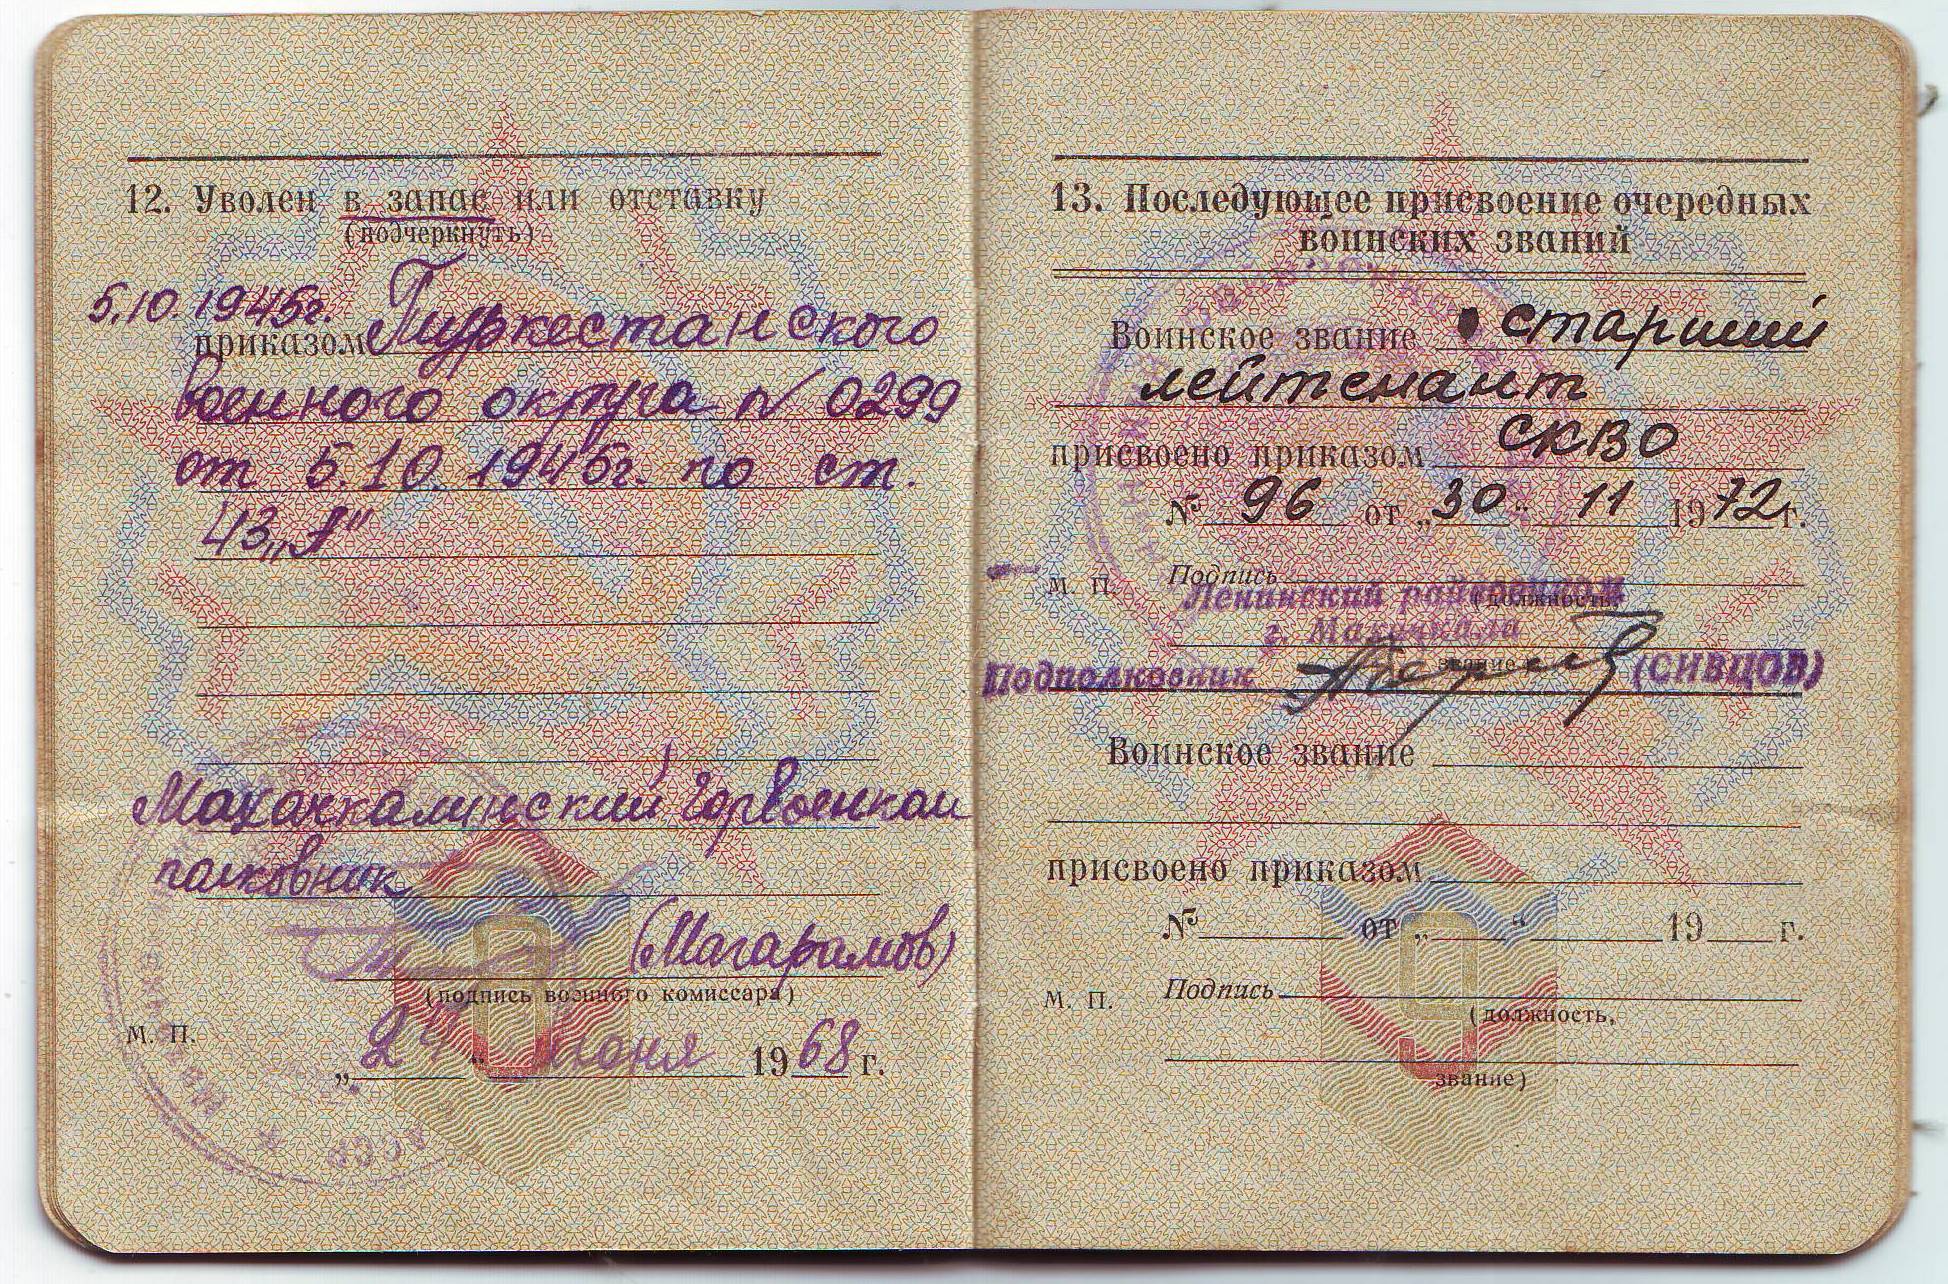 12. Уволен в запас или отставку
(подчеркнуть)
5.10.1945г.
приказом Туркестанского
военного округа № 0299
от 5.10.1945г. по ст.
43 „А"
Махачкалинский Горвоенком
полковник
(Магарамов)
(подпись военного комиссара)
М. П.
„24" июня 1968 г.
АССР
13. Последующее присвоение очередных
воинских званий
Воинское звание старший
лейтенант
присвоено приказом СКВО
№ 96 от „30" 11 1972г.
М. П. Подпись
(должность,
Ленинский райвоенком
г. Махачкала
звание)
Подполковник (СИВЦОВ)
Воинское звание
присвоено приказом
№ от „ " 19 г.
М. П. Подпись
(должность,
звание)